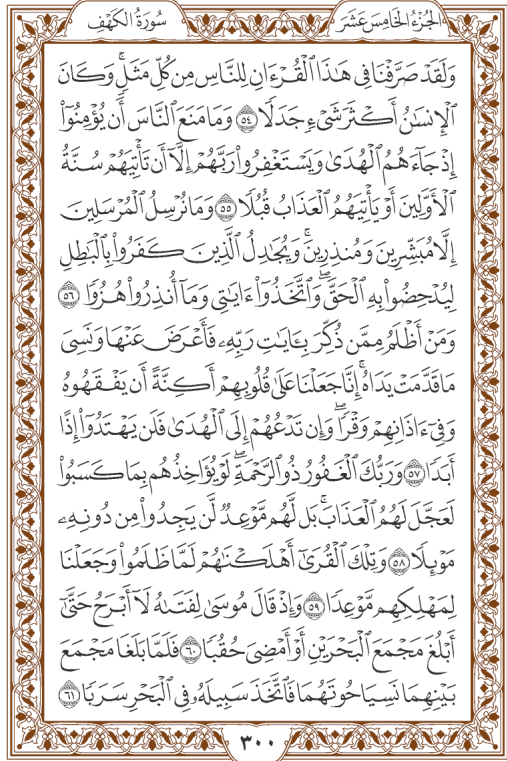 الجُزْءُ الخَامِسَ عَشَرَ
سُورَةُ الكَهْفِ
وَلَقَدْ صَرَّفْنَا فِي هَٰذَا الْقُرْءَانِ لِلنَّاسِ مِن كُلِّ مَثَلٍۚ وَكَانَ
الْإِنسَٰنُ أَكْثَرَ شَىْءٍ جَدَلًا ٥٤ وَمَا مَنَعَ النَّاسَ أَن يُؤْمِنُوٓا۟
إِذْ جَآءَهُمُ الْهُدَىٰ وَيَسْتَغْفِرُوا۟ رَبَّهُمْ إِلَّآ أَن تَأْتِيَهُمْ سُنَّةُ
الْأَوَّلِينَ أَوْ يَأْتِيَهُمُ الْعَذَابُ قُبُلًا ٥٥ وَمَا نُرْسِلُ الْمُرْسَلِينَ
إِلَّا مُبَشِّرِينَ وَمُنذِرِينَۚ وَيُجَٰدِلُ الَّذِينَ كَفَرُوا۟ بِالْبَٰطِلِ
لِيُدْحِضُوا۟ بِهِ الْحَقَّۖ وَاتَّخَذُوٓا۟ ءَايَٰتِى وَمَآ أُنذِرُوا۟ هُزُوًا ٥٦
وَمَنْ أَظْلَمُ مِمَّن ذُكِّرَ بِـَٔايَٰتِ رَبِّهِۦ فَأَعْرَضَ عَنْهَا وَنَسِىَ
مَا قَدَّمَتْ يَدَاهُۚ إِنَّا جَعَلْنَا عَلَىٰ قُلُوبِهِمْ أَكِنَّةً أَن يَفْقَهُوهُ
وَفِىٓ ءَاذَانِهِمْ وَقْرًاۖ وَإِن تَدْعُهُمْ إِلَى الْهُدَىٰ فَلَن يَهْتَدُوٓا۟ إِذًا
أَبَدًا ٥٧ وَرَبُّكَ الْغَفُورُ ذُو الرَّحْمَةِۖ لَوْ يُؤَاخِذُهُم بِمَا كَسَبُوا۟
لَعَجَّلَ لَهُمُ الْعَذَابَۚ بَل لَّهُم مَّوْعِدٌ لَّن يَجِدُوا۟ مِن دُونِهِۦ
مَوْئِلًا ٥٨ وَتِلْكَ الْقُرَىٰٓ أَهْلَكْنَٰهُمْ لَمَّا ظَلَمُوا۟ وَجَعَلْنَا
لِمَهْلِكِهِم مَّوْعِدًا ٥٩ وَإِذْ قَالَ مُوسَىٰ لِفَتَىٰهُ لَآ أَبْرَحُ حَتَّىٰٓ
أَبْلُغَ مَجْمَعَ الْبَحْرَيْنِ أَوْ أَمْضِىَ حُقُبًا ٦٠ فَلَمَّا بَلَغَا مَجْمَعَ
بَيْنِهِمَا نَسِيَا حُوتَهُمَا فَاتَّخَذَ سَبِيلَهُۥ فِى الْبَحْرِ سَرَبًا ٦١
٣٠٠